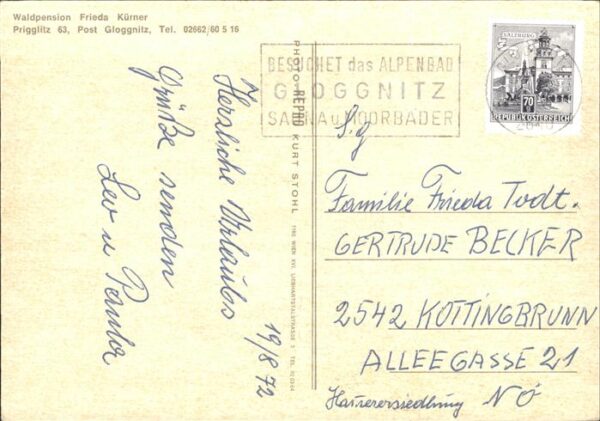 Waldpension Frieda Kürner
Prigglitz 63, Post Gloggnitz, Tel. 02662/60 5 16
Herzliche Urlaubs
Grüße senden
Leo u Paula
19/8 72
PHOTO-REPRO KURT STOHL
BESUCHET das ALPENBAD
GLOGGNITZ
SAUNA u. MOORBÄDER
SALZBURG
70
REPUBLIK ÖSTERREICH
S. g
Familie Frieda Todt.
GERTRUDE BECKER
2542 KOTTINGBRUNN
ALLEEGASSE 21
NÖ